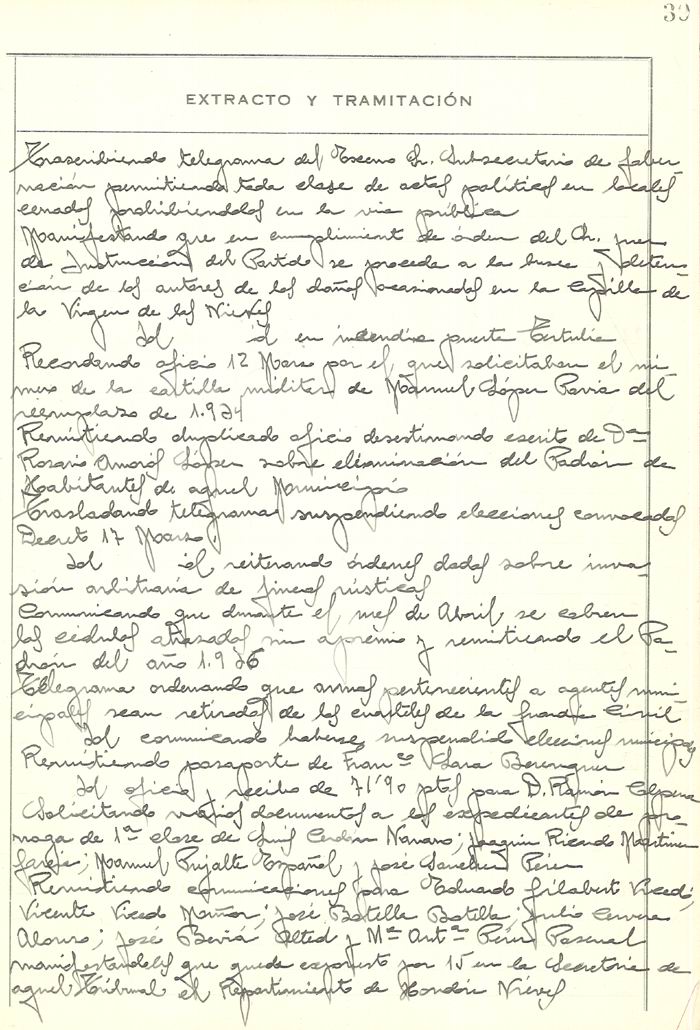 30
EXTRACTO Y TRAMITACIÓN
Trascribiendo telegrama del Excmo Sr. Subsecretario de Gober-
nación permitiendo toda clase de actos políticos en locales
cerrados prohibiendolos en la via pública
Manifestando que en cumplimiento de órden del Sr. Juez
de Instrucción del Partido se proceda a la busca y deten-
ción de los autores de los daños ocasionados en la Capilla de
la Virgen de las Nieves
Id id en incendio puerta Tertulia
Recordando oficio 12 Marzo por el que solicitaban el nú-
mero de la cartilla militar de Manuel López Pavia del
reemplazo de 1.934
Remitiendo duplicado oficio desestimando escrito de Dª
Rosario Amorós López sobre eliminación del Padrón de
Habitantes de aquel Municipio
Trasladando telegrama suspendiendo elecciones convocadas
Decreto 17 Marzo.
Id id reiterando órdenes dadas sobre inva-
sión arbitraria de fincas rústicas
Comunicando que durante el mes de Abril se cobren
las cédulas atrasadas sin apremio y remitiendo el Pa-
drón del año 1.936
Telegrama ordenando que armas pertenecientes a agentes muni-
cipales sean retiradas de los cuarteles de la Guardia Civil
Id comunicando haberse suspendido elecciones
Remitiendo pasaporte de Franco Berenguer
Id oficio y recibo de 71'90 ptas para D. Ramón Calpena
Solicitando varios documentos a los expedientes de pró-
rroga de 1ª clase de Luis Cerdán Navarro; Joaquin Ricardo Martinez
García; Manuel Pujalte Español y José Sanchez Pérez
Remitiendo comunicaciones para Eduardo Gilabert Vicedo;
Vicente Vicedo Mañor; José Botella Botella; Julio Cervera
Alonso; José Beviá Alted y Mª Antª Pérez Pascual
manifestandoles que queda expuesto por 15 en la Secretoria de
aquel Tribunal el Repartimiento de Hondón Nieves